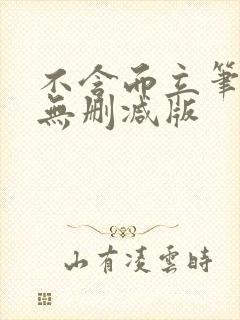 不含而立筆
無刪减版
山有凌雲時